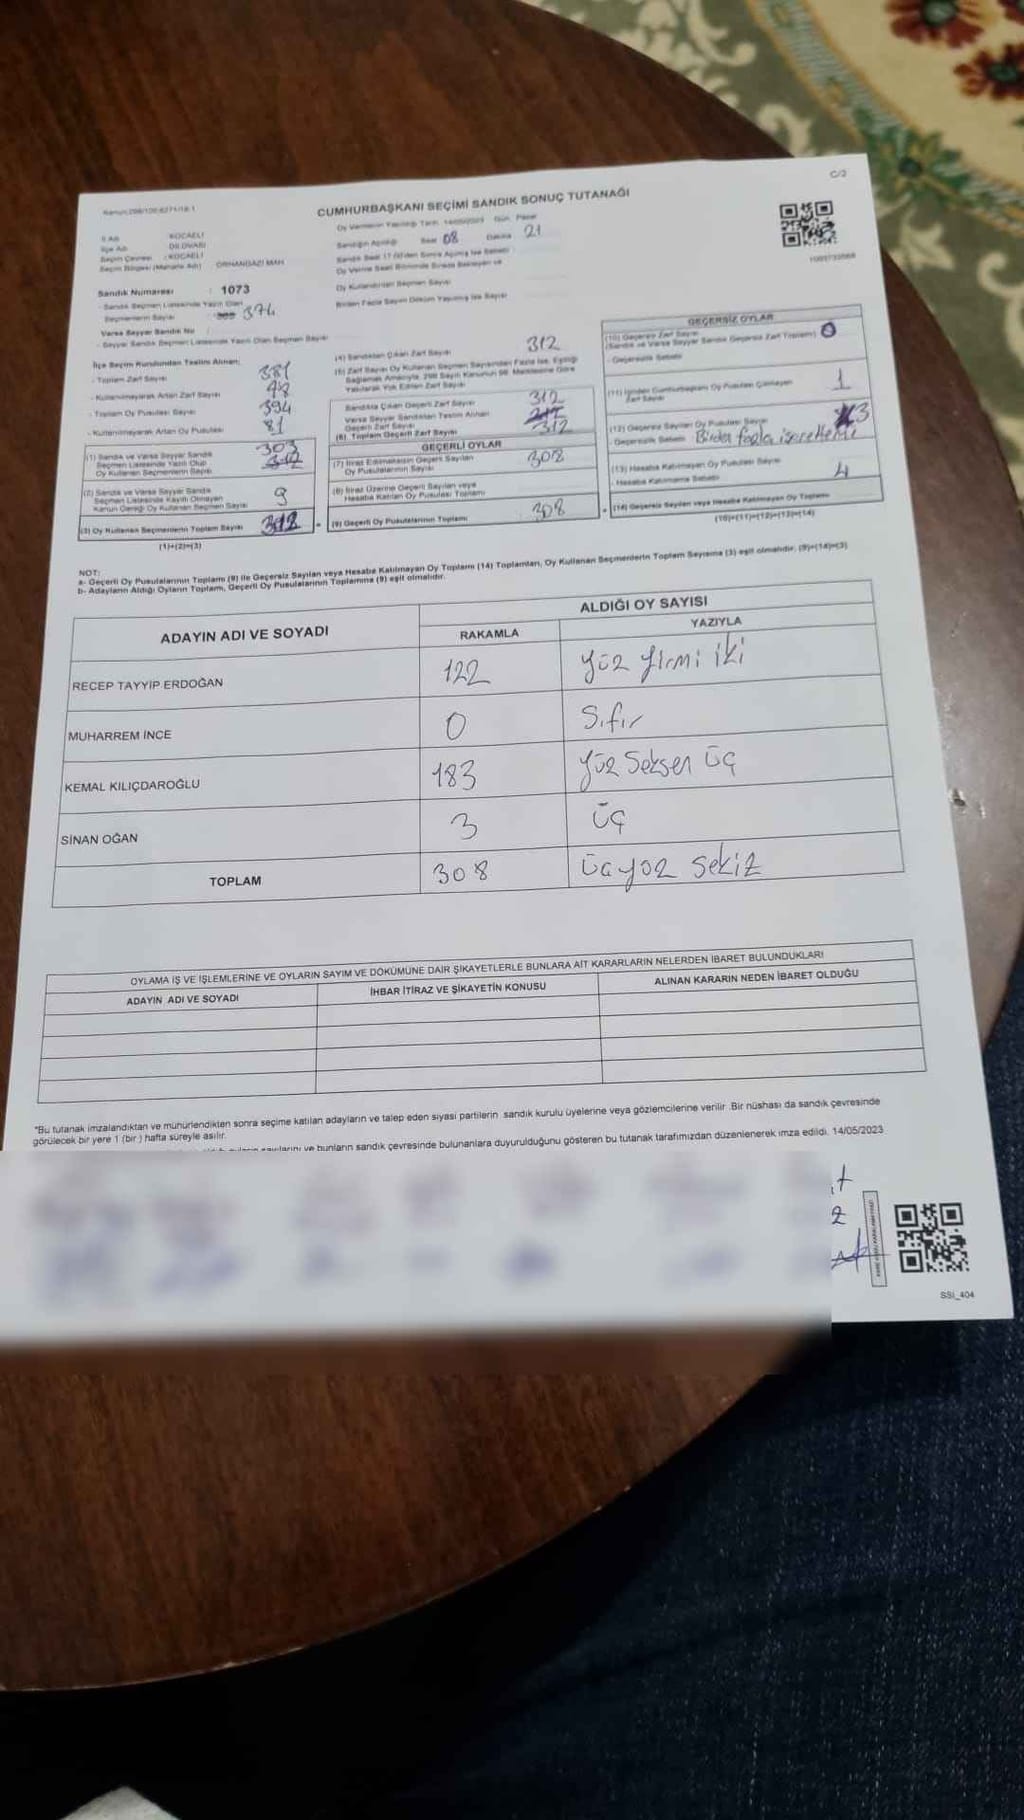 C/2
CUMHURBAŞKANI SEÇİMİ SANDIK SONUÇ TUTANAĞI
Oy Vermenin Yapıldığı Tarih 14/05/2023 Gün Pazar
İl Adı KOCAELİ
İlçe Adı DİLOVASI
Seçim Çevresi : KOCAELİ
Seçim Bölgesi (Mahalle Adı) ORHANGAZİ MAH
Sandığın Açıldığı Saat 08 Dakika 21
Sandık Numarası : 1073
Sandık Seçmen Listesinde Yazılı Olan
Seçmenlerin Sayısı 374
Varsa Seyyar Sandık No
Seyyar Sandık Seçmen Listesinde Yazılı Olan Seçmen Sayısı
Oy Kullandırılan Seçmen Sayısı
Birden Fazla Sayım Döküm Yapılmış İse Sayısı
İlçe Seçim Kurulundan Teslim Alınan;
- Toplam Zarf Sayısı 381
- Kullanılmayarak Artan Zarf Sayısı
- Toplam Oy Pusulası Sayısı 394
- Kullanılmayarak Artan Oy Pusulası 81
(1) Sandık ve Varsa Seyyar Sandık
Seçmen Listesinde Yazılı Olup
Oy Kullanan Seçmenlerin Sayısı 303
(2) Sandık ve Varsa Seyyar Sandık
Seçmen Listesinde Kayıtlı Olmayan
Kanun Gereği Oy Kullanan Seçmen Sayısı 9
(3) Oy Kullanan Seçmenlerin Toplam Sayısı 312
(1)+(2)=(3)
(4) Sandıktan Çıkan Zarf Sayısı 312
(5) Zarf Sayısı Oy Kullanan Seçmen Sayısından Fazla İse, Eşitliği
Sağlamak Amacıyla, 298 Sayılı Kanunun 98. Maddesine Göre
Yakılarak Yok Edilen Zarf Sayısı
Sandıkta Çıkan Geçerli Zarf Sayısı 312
Varsa Seyyar Sandıktan Teslim Alınan
Geçerli Zarf Sayısı
(6) Toplam Geçerli Zarf Sayısı 312
GEÇERLİ OYLAR
(7) İtiraz Edilmeksizin Geçerli Sayılan
Oy Pusulalarının Sayısı 308
(8) İtiraz Üzerine Geçerli Sayılan veya
Hesaba Katılan Oy Pusulası Toplamı
(9) Geçerli Oy Pusulalarının Toplamı 308
GEÇERSİZ OYLAR
(10) Geçersiz Zarf Sayısı
(Sandık ve Varsa Seyyar Sandık Geçersiz Zarf Toplamı) 0
- Geçersizlik Sebebi
(11) İçinden Cumhurbaşkanı Oy Pusulası Çıkmayan
Zarf Sayısı 1
(12) Geçersiz Sayılan Oy Pusulası Sayısı 3
- Geçersizlik Sebebi
(13) Hesaba Katılmayan Oy Pusulası Sayısı
- Hesaba Katılmama Sebebi 4
(14) Geçersiz Sayılan veya Hesaba Katılmayan Oy Toplamı
(10)+(11)+(12)+(13)=(14)
NOT:
a- Geçerli Oy Pusulalarının Toplamı (9) ile Geçersiz Sayılan veya Hesaba Katılmayan Oy Toplamı (14) Toplamları, Oy Kullanan Seçmenlerin Toplam Sayısına (3) eşit olmalıdır. (9)+(14)=(3)
b- Adayların Aldığı Oyların Toplamı, Geçerli Oy Pusulalarının Toplamına (9) eşit olmalıdır.
ADAYIN ADI VE SOYADI ALDIĞI OY SAYISI
RAKAMLA YAZIYLA
RECEP TAYYİP ERDOĞAN 122 yüz yirmi iki
MUHARREM İNCE 0 Sıfır
KEMAL KILIÇDAROĞLU 183 yüz Seksen üç
SİNAN OĞAN 3 üç
TOPLAM 308 üçyüz sekiz
OYLAMA İŞ VE İŞLEMLERİNE VE OYLARIN SAYIM VE DÖKÜMÜNE DAİR ŞİKAYETLERLE BUNLARA AİT KARARLARIN NELERDEN İBARET BULUNDUKLARI
ADAYIN ADI VE SOYADI İHBAR İTİRAZ VE ŞİKAYETİN KONUSU ALINAN KARARIN NEDEN İBARET OLDUĞU
"Bu tutanak imzalandıktan ve mühürlendikten sonra seçime katılan adayların ve talep eden siyasi partilerin sandık kurulu üyelerine veya gözlemcilerine verilir .Bir nüshası da sandık çevresinde
görülecek bir yere 1 (bir ) hafta süreyle asılır.
ve bunların sandık çevresinde bulunanlara duyurulduğunu gösteren bu tutanak tarafımızdan düzenlenerek imza edildi. 14/05/2023
SSI_404